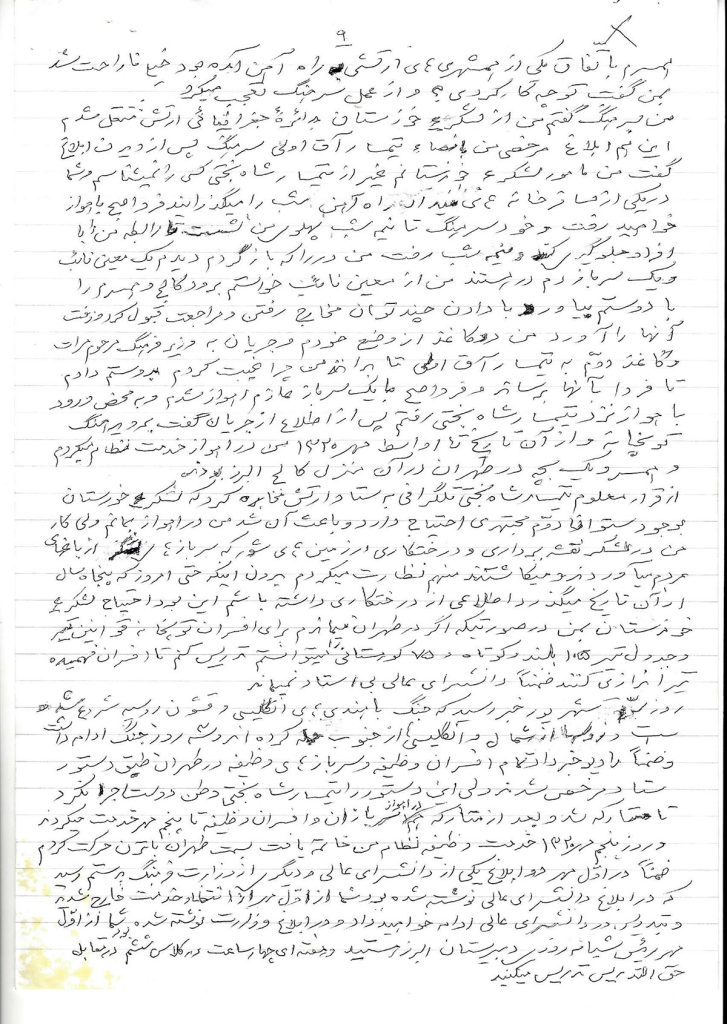 ۹
همسرم با اتفاق یکی از همشهری های ارتشی به راه آهن آمده بود خیلی ناراحت شد
بمن گفت تو چه کار کردی؟ و از عمل سرهنگ تعجب میکرد
من بسرهنگ گفتم من از لشکر ۶ خوزستان بدائرهٔ جغرافیائی ارتش منتقل شدم
این هم ابلاغ مرخصی من بامضاء تیمسار آق اولی سرهنگ پس از دیدن ابلاغ
گفت من مامور لشکر ۶ خوزستانم غیر از تیمسار شاه بختی کسی را نمیشناسم و شما
در یکی از مسافرخانه های میدان راه آهن شب را میگذرانید فردا صبح باهواز
خواهید رفت و خود سرهنگ تا نیمه شب پهلوی من نشست تا رابطه من را با
افراد جلوگیری کند و نیمه شب رفت من در را که باز کردم دیدم یک معین نایب
و یک سرباز دم در هستند من از معین نایب خواستم برود کالج و همسرم را
با دوستم بیاورد با دادن چند تومان مخارج رفتن و مراجعت قبول کرد و رفت
آنها را آورد من دو کاغذ از وضع خودم و جریان به وزیر فرهنگ مرحوم مرآت
و کاغذ دوم به تیمسار آق اولی تا بدانند من چرا غیبت کردم بدوستم دادم
تا فردا بآنها برساند و فردا صبح با یک سرباز عازم اهواز شدم و به محض ورود
باهواز نزد تیمسار شاه بختی رفتم پس از اطلاع از جریان گفت بروید هنگ
توپخانه و از آن تاریخ تا اواسط مهر ۱۳۲۰ من در اهواز خدمت نظام میکردم
و همسر و یک بچه در طهران در آن منزل کالج البرز بودند
از قرار معلوم تیمسار شاه بختی تلگرافی به ستاد ارتش مخابره کرد که لشکر ۶ خوزستان
بوجود ستوان دوم مجتهدی احتیاج دارد و باعث آن شد من در اهواز بمانم ولی کار
من در لشکر نقشه برداری و درختکاری در زمین های شور که سربازها از باغهای
مردم میآوردند و میکاشتند منهم نظارت میکردم بدون اینکه حتی امروز که پنجاه سال
از آن تاریخ میگذرد اطلاعی از درختکاری داشته باشم این بود احتیاج لشکر ۶
خوزستان بمن در صورتیکه اگر در طهران میماندم برای افسران توپخانه قوانین تیر
و جدول تیر ۱۰۵ بلند و کوتاه و ۷۵ کوهستانی میتوانستم تدریس کنم تا افسران فهمیده
تیراندازی کنند ضمناً دانشسرای عالی بی استاد نمیماند
روز سوم شهریور خبر رسید که جنگ با هندی های انگلیسی و قشون روسیه شروع شده
است و روسها از شمال و انگلیسی ها از جنوب حمله کرده اند و سه روز جنگ ادامه داشت
و ضمناً رادیو خبر داد تمام افسران وظیفه و سربازهای وظیفه در طهران طبق دستور
ستاد مرخص شدند ولی این دستور را تیمسار شاه بختی وطن دوست اجرا نکرد
تا متارکه شد و بعد از متارکه هم در اهواز سربازان و افسران وظیفه تا پنجم مهر خدمت میکردند
و روز پنجم مهر ۱۳۲۰ خدمت وظیفه نظام من خاتمه یافت بسمت طهران با ترن حرکت کردم
ضمناً در اول مهر دو ابلاغ یکی از دانشسرای عالی و دیگری از وزارت فرهنگ بدستم رسید
که در ابلاغ دانشسرای عالی نوشته شده بود شما از اول مهر از انتظار خدمت خارج شدید
و تدریس در دانشسرای عالی ادامه خواهید داد و در ابلاغ وزارت نوشته شده بود شما از اول
مهر رئیس شبانه روزی دبیرستان البرز هستید و هفته ای چهار ساعت در کلاس ششم در مقابل
حق التدریس تدریس میکنید